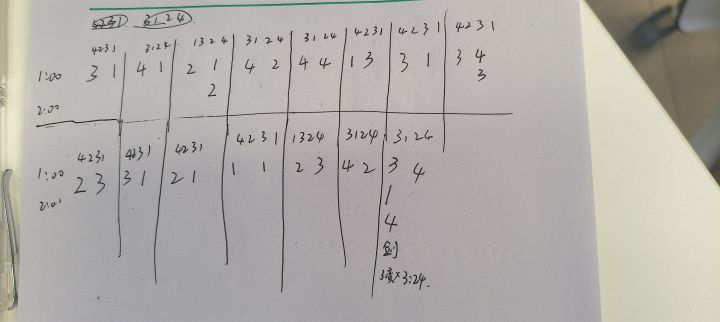 4231 3124
4231 3124 1324 3124 3124 4231 4231 4231
1:00 3 1 4 1 2 1 4 2 4 4 1 3 3 1 3 4
2 3
2:00
4231 4231 4231 4231 1324 3124 3124
1:00 2 3 3 1 2 1 1 1 2 3 4 2 3 4
2:00 1
4
3:24.